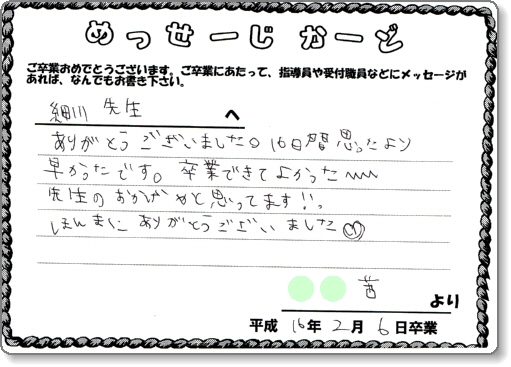 めっせーじかーど
ご卒業おめでとうございます。ご卒業にあたって、指導員や受付職員などにメッセージが
あれば、なんでもお書き下さい。
細川 先生 へ
ありがとうございました。16日間思ったより
早かったです。卒業できてよかった〜
先生のおかげやと思ってます!!
ほんまにありがとうございました
茜 より
平成 16年 2月 6日卒業